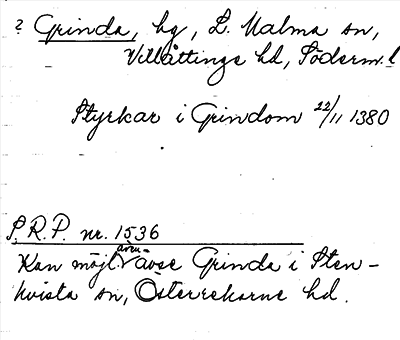 ? Grinda, hg, L. Malma sn,
Villåttinge hd, Söderm. l
Styrkar i Grindom 22/11 1380
S.R.P. nr. 1536
Kan möjl. även avse Grinda i Sten-
kvista sn, Österrekarne hd.